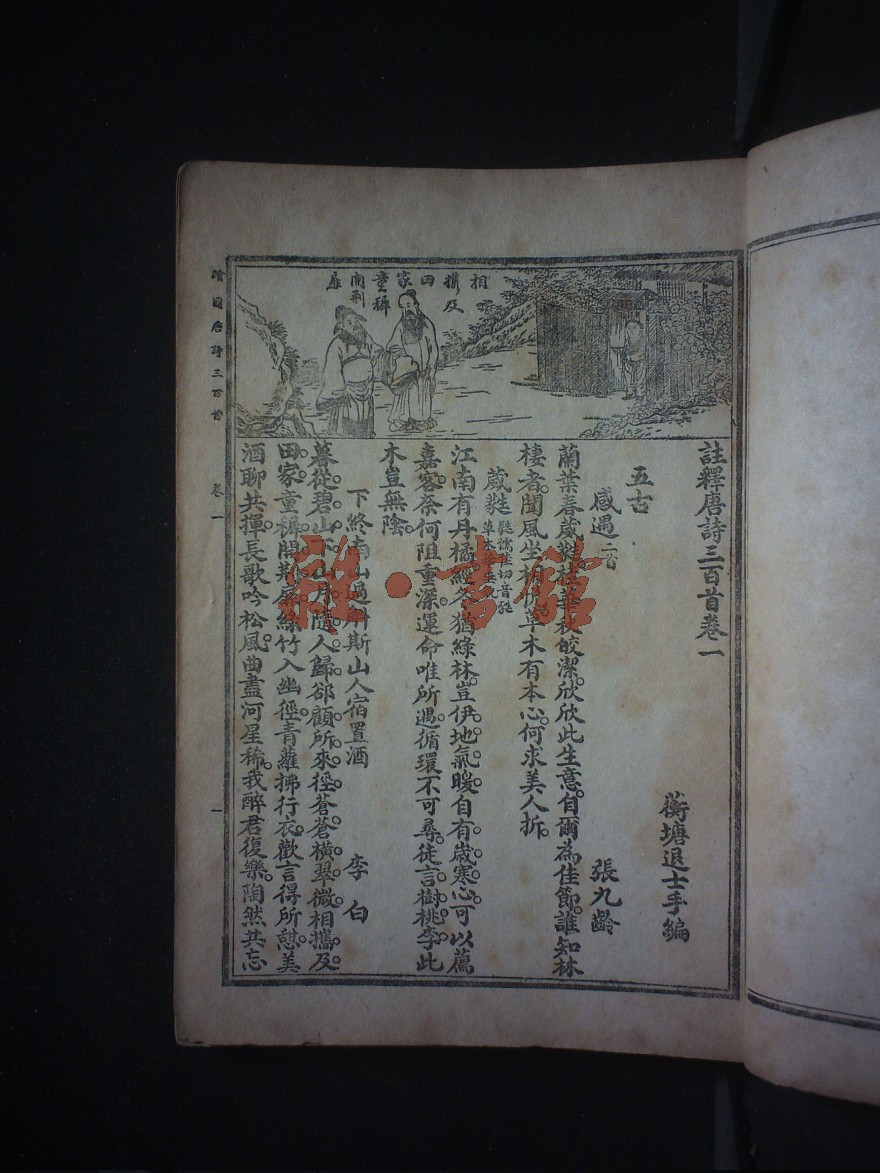 相攜及
田家
童稚
開荊
扉
註釋唐詩三百首卷一
蘅塘退士手編
五古
感遇二首
張九齡
蘭葉春葳蕤桂華秋皎潔欣欣此生意自爾為佳節誰知林
棲者聞風坐相悅草木有本心何求美人折
葳蕤
江南有丹橘經冬猶綠林豈伊地氣暖自有歲寒心可以薦
嘉客奈何阻重深運命唯所遇循環不可尋徒言樹桃李此
木豈無陰
下終南山過斛斯山人宿置酒
李白
暮從碧山下山月隨人歸卻顧所來徑蒼蒼橫翠微相攜及
田家童稚開荊扉綠竹入幽徑青蘿拂行衣歡言得所憩美
酒聊共揮長歌吟松風曲盡河星稀我醉君復樂陶然共忘
繪圖唐詩三百首
卷一
一
雜·書館